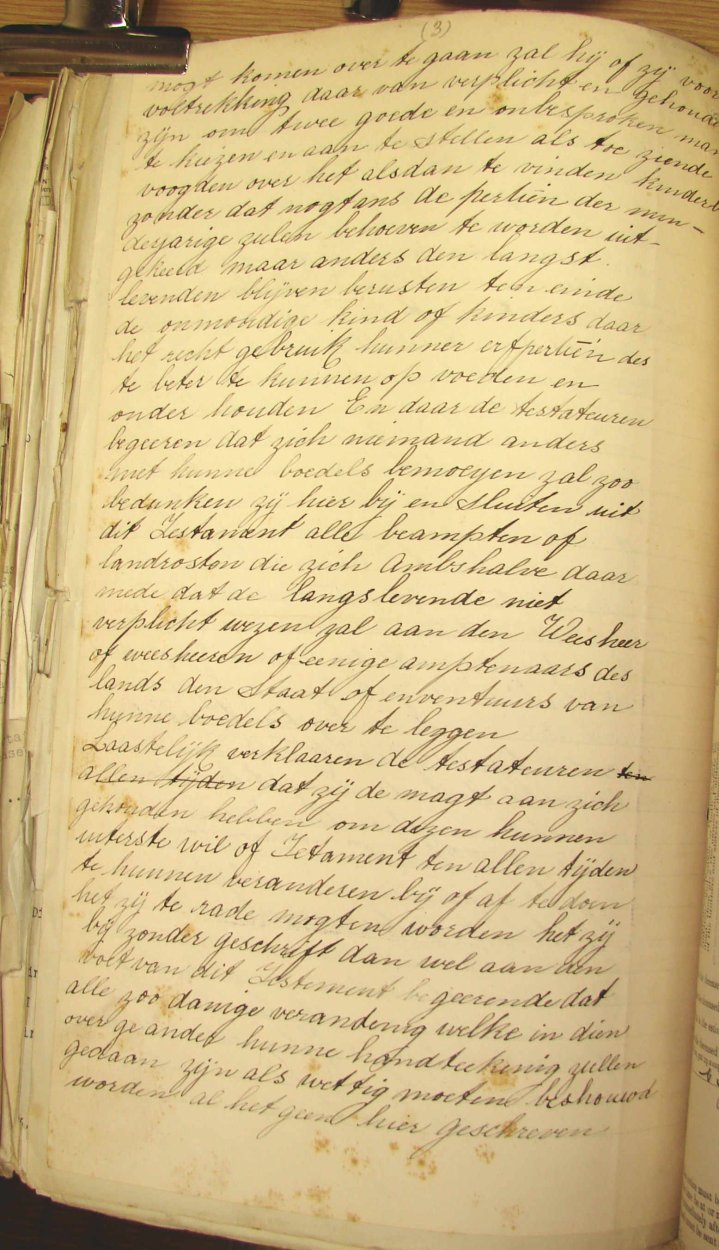 (3)
mogt komen over te gaan zal hij of zij voor
voltrekking daar van verplicht en gehouden
zijn om twee goede en onbesproken man
te kiezen en aan te stellen als toe ziende
voogden over het alsdan te vinden kinderen
zonder dat nogtans de pertiën der min-
dejarige zulen behoeven te worden uit-
gekeeld maar anders den langst.
levenden blijven berusten ten einde
de onmondige kind of kinders daar
het recht gebruik hunner erfpertiën des
te beter te kunnen op voeden en
onder houden En daar de testateuren
begeeren dat zich niemand anders
met hunne boedels bemoeyen zal zoo
bedunken zij hier bij en sluiten uit
dit Testament alle beampten of
landrosten die zich Ambshalve daar
mede dat de langslevende niet
verplicht wezen zal aan den Wees heer
of weesheeren of eenige amptenaars des
lands den Staat of enventuurs van
hunne boedels over te leggen
Laastelijk verklaaren de testateuren ten
allen tijden dat zij de magt aan zich
gehouden hebben om dezen hunnen
uiterste wil of Tetament ten allen tijden
te kunnen veranderen bij of af te doen
het zij te rade mogten worden het zij
bij zonder geschrift dan wel aan den
voet van dit Testement begeerende dat
alle zoo danige verandenig welke in dien
over ge ander hunne handteekenig zullen
gedaan zijn als wettig moeten beshouwd
worden al het geen hier geschreven